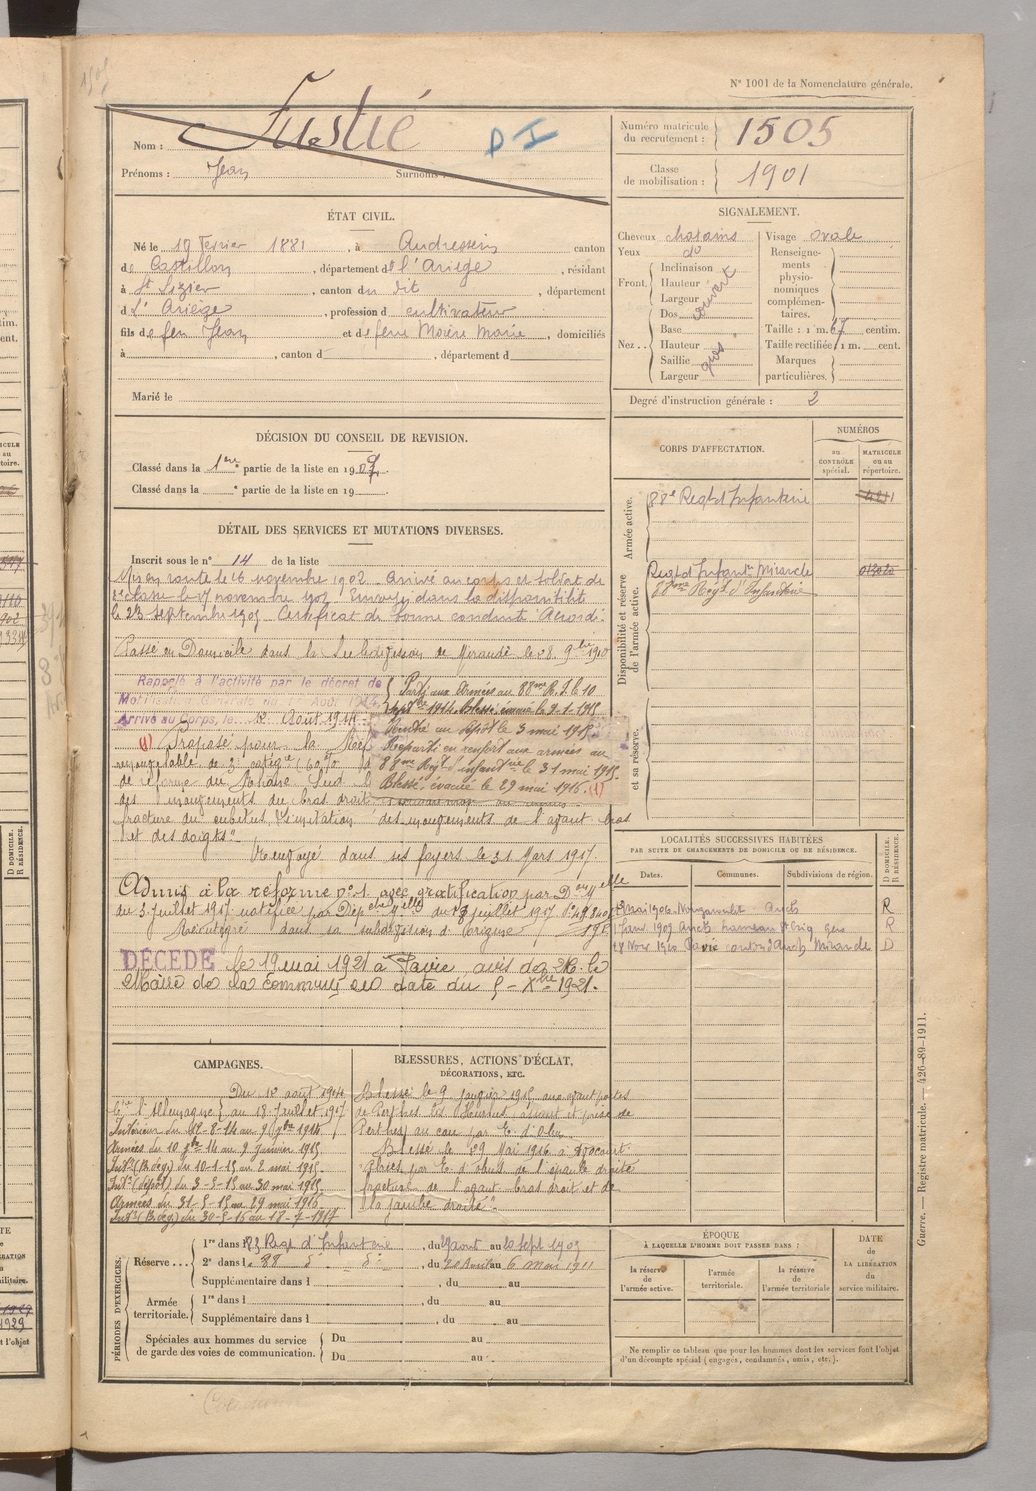 N° 1001 de la Nomenclature générale.
Nom : Fustié
P I
Prénoms : Jean Surnoms :
Numéro matricule du recrutement : 1505
Classe de mobilisation : 1901
ÉTAT CIVIL.
Né le 19 Février 1881, à Andressein canton
de Castillon, département de l'Ariège, résidant
à St Lizier, canton du dit, département
d L'Ariège, profession d cultivateur
fils de feu Jean et de feue Marie, domiciliés
à , canton d , département d
Marié le
SIGNALEMENT.
Cheveux chatains Visage ovale
Yeux do Renseignements physionomiques complémentaires.
Front. Inclinaison
Hauteur
Largeur
couvert
Nez .. Dos
Base
Hauteur
Saillie
Largeur
gros
Taille : 1 m. 67 centim.
Taille rectifiée : 1 m. cent.
Marques particulières.
Degré d'instruction générale : 2
DÉCISION DU CONSEIL DE REVISION.
Classé dans la 1ère partie de la liste en 190
Classé dans la e partie de la liste en 19
CORPS D'AFFECTATION.
NUMÉROS
au CONTRÔLE spécial.
MATRICULE ou au répertoire.
Armée active.
88e Regt d'Infanterie
Disponibilité et réserve de l'armée active.
Regt d'Infantie Mirande
88ème Regt d'Infanterie
et sa réserve.
DÉTAIL DES SERVICES ET MUTATIONS DIVERSES.
Inscrit sous le n° 14 de la liste
Mis en route le 16 novembre 1902. Arrivé au corps et Soldat de
2e classe le 17 novembre 1902. Envoyé dans la disponibilité
le 23 septembre 1905 Certificat de bonne conduite Accordé.
Passé en Domicile dans la Subdivision de Mirande le 28 9bre 1910
Rappelé à l'activité par le décret de
Mobilisation Générale du Août 1914
Arrivé au Corps, le 12 Août 1914
Parti aux Armées au 88ème R.I. le 10
Septbre 1914. Blessé évacué le 9-1-1915
Rentré au dépôt le 3 mai 1915
Reparti en renfort aux armées au
88ème Regt d'infantrie le 31 mai 1915.
Blessé évacué le 29 mai 1916. (1)
(1) Proposé pour la
renouvelable de 2e catégie (60%)
de réforme du
des mouvements du bras droit
fracture du cubitus, Limitation des mouvements de l'avant bras
et des doigts".
Renvoyé dans ses foyers le 31 Mars 1917.
Admis à la réforme n°1 avec gratification par Don Melle
du 3 Juillet 1917 notifiée par Dépche Melle du juillet 1917
dans sa subdivision d'origine
DÉCÉDÉ le 19 mai 1921 à Pavie avis de M. le
Maire de la commune en date du 5 - Xbre 1921.
LOCALITÉS SUCCESSIVES HABITÉES
PAR SUITE DE CHANGEMENTS DE DOMICILE OU DE RÉSIDENCE.
Dates. Communes. Subdivisions de région. D DOMICILE. R RÉSIDENCE.
Mai 1906 Auch R
1er Janv 1909 Auch R
28 Nov 1910 Pavie canton d'Auch Mirande D
CAMPAGNES.
Du 12 août 1914
Cre l'Allemagne au 18 Juillet 1917
Intérieur du 12-8-14 au 9 7bre 1914.
Armées du 10 7bre 14 au 9 Janvier 1915.
Intr (B. deg.) du 10-1-15 au 2 mai 1915.
Intr (dépôt) du 3-5-15 au 30 mai 1915.
Armées du 31-5-15 au 29 mai 1916
Intr (B. deg) du 30-5-16 au 18-7-1917
BLESSURES, ACTIONS D'ÉCLAT, DÉCORATIONS, ETC.
Blessé le 9 janvier 1915 aux avant postes
de Perthes les Hurlus, assaut et prise de
Perthes au cou par E. d'Obus.
Blessé le 29 Mai 1916 à Avocourt
"Plaies par E. d'obus de l'épaule droite
fracture de l'avant bras droit et de
la jambe droite".
PÉRIODES D'EXERCICES.
Réserve ... 1re dans l 83 Regt d'Infanterie, du 29 août au 20 Sept 1908
2e dans l 88 d° d°, du au 6 mai 1911
Supplémentaire dans l , du au
Armée territoriale. 1re dans l , du au
Supplémentaire dans l , du au
Spéciales aux hommes du service de garde des voies de communication. Du au
Du au
ÉPOQUE À LAQUELLE L'HOMME DOIT PASSER DANS :
la réserve de l'armée active.
l'armée territoriale.
la réserve de l'armée territoriale
DATE de LA LIBÉRATION du service militaire.
Ne remplir ce tableau que pour les hommes dont les services font l'objet
d'un décompte spécial (engagés, condamnés, omis, etc.).
Guerre. — Registre matricule. — 426-89-1911.